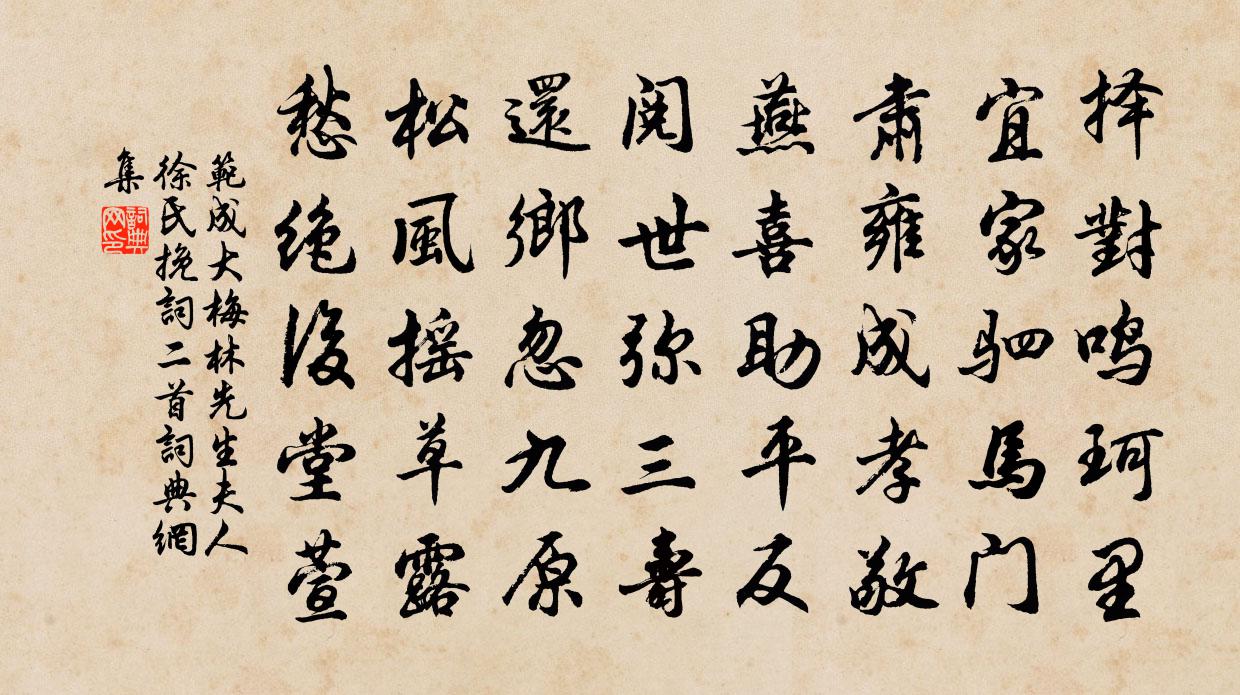 择對鸣珂里
宜家驷馬门
肅雍成孝敬
燕喜助平反
阅世弥三壽
還鄉忽九原
松風摇草露
愁绝後堂萱
範成大梅林先生夫人
徐氏挽詞二首詞典網
集
詞典网印